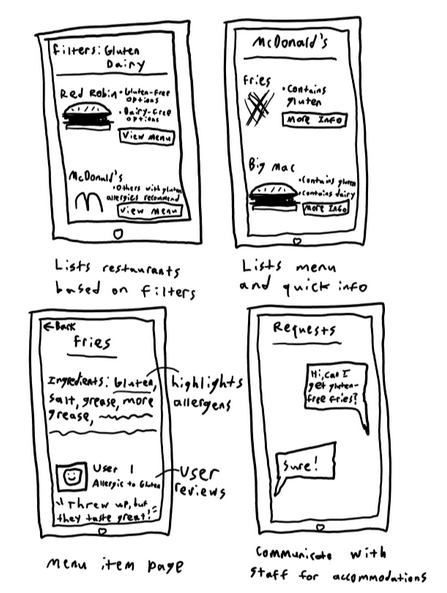 Filters: Gluten
Dairy
Red Robin
• Gluten-free
options
• Dairy-free
options
View Menu
McDonald's
• Others with gluten
allergies recommend
View Menu
Lists restaurants
based on filters
McDonald's
Fries
• Contains
gluten
More Info
Big Mac
• Contains gluten
• Contains dairy
More Info
Lists menu
and quick info
← Back
Fries
Ingredients: Gluten,
salt, grease, more
grease,
highlights
allergens
User 1
Allergic to Gluten
"Threw up, but
they taste great!"
User
reviews
Menu item page
Requests
Hi, can I
get gluten-
free fries?
Sure!
Communicate with
staff for accommodations